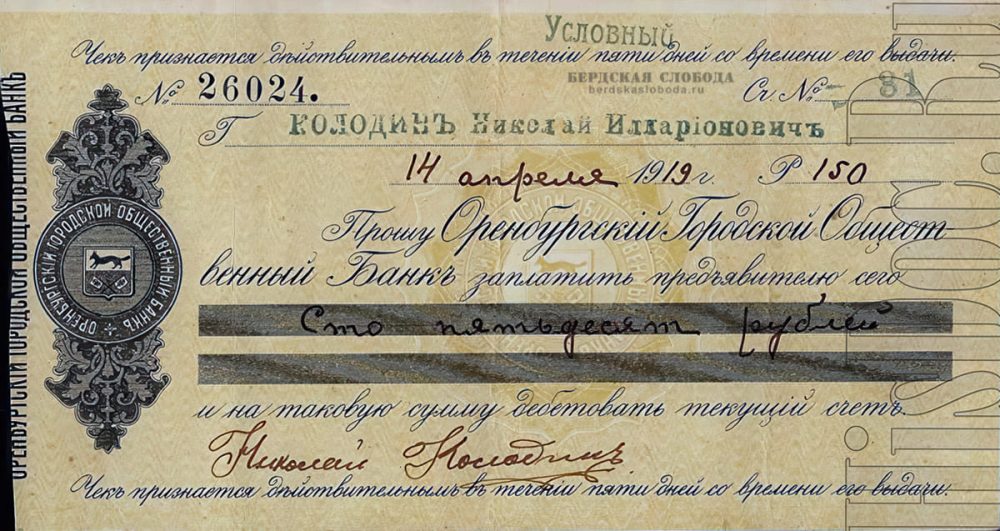 Условный
Чекъ признается дѣйствительнымъ въ теченіи пяти дней со времени его выдачи.
БЕРДСКАЯ СЛОБОДА
berdskasloboda.ru
№ 26024.
Сч. № 81
Г КОЛОДИНЪ Николай Илларіоновичъ
14 апреля 1919 г. Р 150
Прошу Оренбургскій Городской Общест-
венный Банкъ заплатить предъявителю сего
Сто пятьдесят рублей
и на таковую сумму дебетовать текущій счетъ.
Николай Колодинъ
Чекъ признается дѣйствительнымъ въ теченіи пяти дней со времени его выдачи.
ОРЕНБУРГСКІЙ ГОРОДСКОЙ ОБЩЕСТВЕННЫЙ БАНКЪ
ОРЕНБУРГСКІЙ ГОРОДСКОЙ ОБЩЕСТВЕННЫЙ БАНКЪ